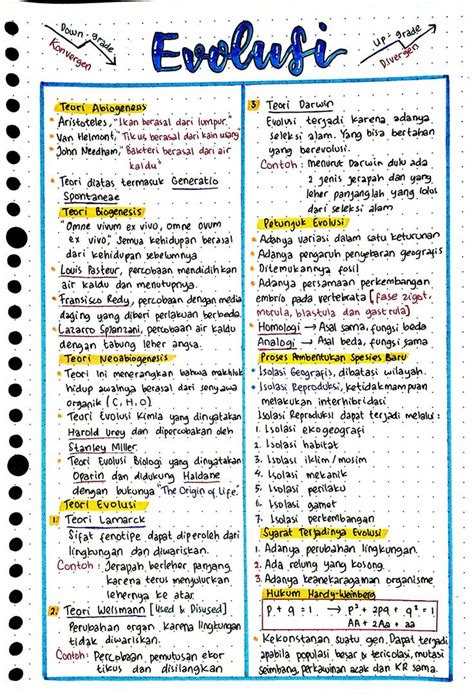 Down-grade
Konvergen
Evolusi
Up-grade
Divergen
Teori Abiogenesis
Aristoteles, "Ikan berasal dari lumpur."
Van Helmont, "Tikus berasal dari kain usang
John Needhan, "Bakteri berasal dari air
kaldu"
Teori diatas termasuk Generatio
Spontaneae
Teori Biogenesis
"Omne vivum ex vivo, omne ovum
ex vivo," Semua kehidupan berasal
dari kehidupan sebelumnya
Louis Pasteur, percobaan mendidihkan
air kaldu dan menutupnya.
Fransisco Redy, percobaan dengan media
daging yang diberi perlakuan berbeda.
Lazarro Splanzani, percobaan air kaldu
dengan tabung leher angsa.
Teori Neoabiogenesis
Teori Ini menerangkan bahwa makhluk
hidup awalnya berasal dari senyawa
organik (C, H, O)
Teori Evolusi Kimia yang dinyatakan
Harold Urey dan dipercobakan oleh
Stanley Miller.
Teori Evolusi Biologi yang dinyatakan
Oparin dan didukung Haldane
dengan bukunya "The Origin of Life."
Teori Evolusi
1. Teori Lamarck
Sifat fenotipe dapat diperoleh dari
lingkungan dan diwariskan.
Contoh : Jerapah berleher panjang
karena terus menjulurkan
lehernya ke atas.
2. Teori Weismann [Used & Disused]
Perubahan organ karena lingkungan
tidak diwariskan.
Contoh: Percobaan pemutusan ekor
tikus dan disilangkan
3 Teori Darwin
Evolusi terjadi karena adanya
seleksi alam. Yang bisa bertahan
yang berevolusi.
Contoh : menurut Darwin dulu ada
2 jenis jerapah dan yang
leher panjanglah yang lolos
dari seleksi alam
Petunjuk Evolusi
Adanya variasi dalam satu keturunan
Adanya pengaruh penyebaran geografis
Ditemukannya fosil
Adanya persamaan perkembangan
embrio pada vertebrata [fase zigot,
morula, blastula dan gastrula]
Homologi → Asal sama, fungsi beda
Analogi → Asal beda, fungsi sama
Proses Pembentukan Spesies Baru
Isolasi Geografis, dibatasi wilayah.
Isolasi Reproduksi, ketidakmampuan
melakukan interhibridasi
Isolasi Reproduksi dapat terjadi melalui :
1. Isolasi ekogeografi
2. Isolasi habitat
3. Isolasi iklim/musim
4. Isolasi mekanik
5. Isolasi perilaku
6. Isolasi gamet
7. Isolasi perkembangan
Syarat Terjadinya Evolusi
1. Adanya perubahan lingkungan.
2. Ada relung yang kosong.
3. Adanya keanekaragaman organisme
Hukum Hardy-Weinberg
p + q = 1 → p² + 2pq + q² = 1
AA + 2Aa + aa
Kekonstanan suatu gen. Dapat terjadi
apabila populasi besar & tericolasi, mutasi
seimbang, perkawinan acak dan KR sama.